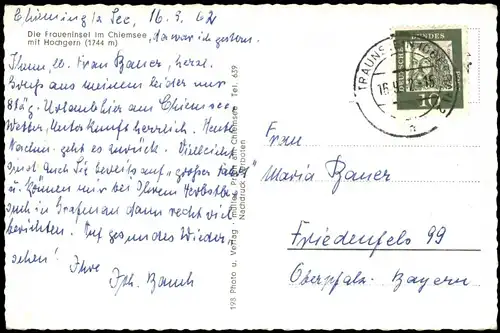 Chieming/a See, 16.9.62
Die Fraueninsel im Chiemsee
mit Hochgern (1744 m)
, da war ich gestern.
Ihnen, lb. Frau Bauer, herzl.
Gruß aus meinem leider nur
8täg. Urlaub hier am Chiemsee
Wetter, Unterkunft herrlich. Heute
Nachm. geht es zurück. Vielleicht
sind auch Sie bereits auf "großer Fahrt"
u. können mir bei Ihrem Herbstbe-
such in Grafenau dann recht viel
berichten. Auf gesundes Wieder-
sehen! Ihre
Joh. Bauch
198 Photo u. Verlag Prien am Chiemsee Tel. 659
Nachdruck verboten
TRAUNSTEIN
16.9.62-15
BUNDES
10
a
Frau
Maria Bauer
Friedenfels 99
Oberpfalz - Bayern